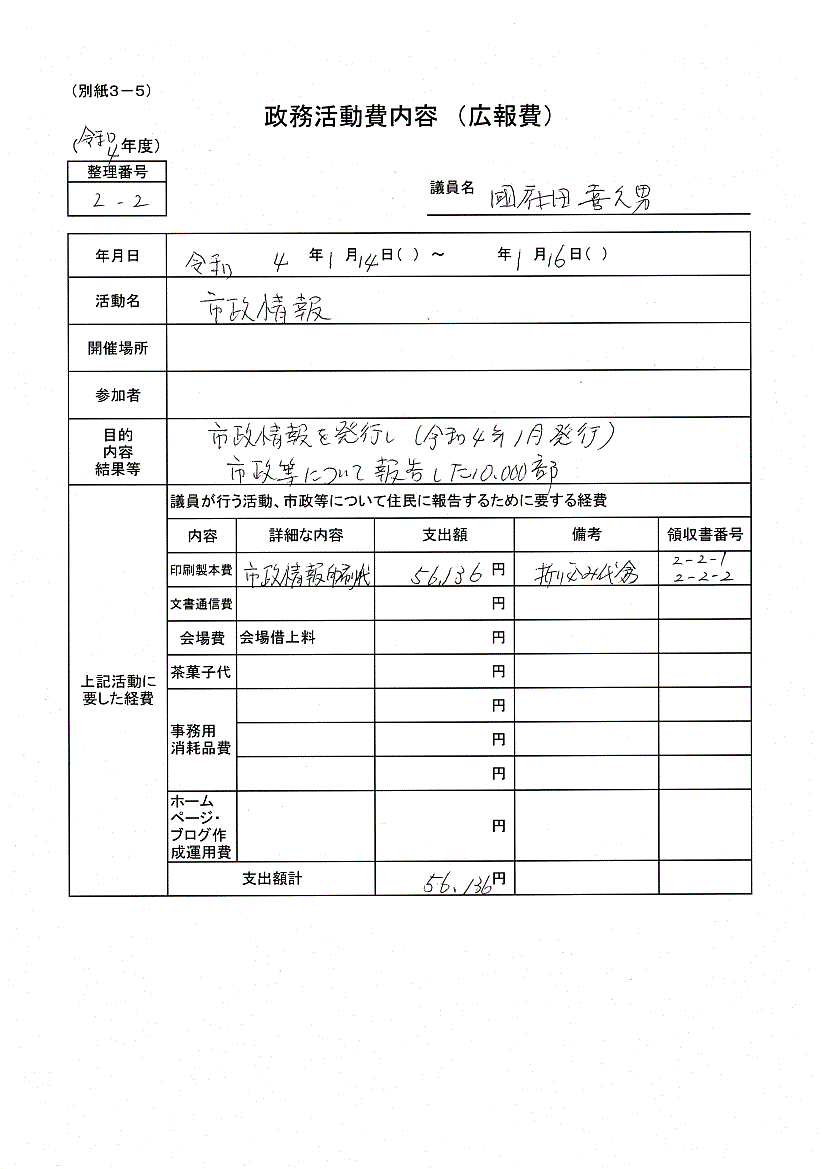 （別紙３－５）
政務活動費内容 （広報費）
（令和4年度）
整理番号
2-2
議員名 國府田喜久男
年月日 令和 4 年 1 月 14 日（ ）～ 年 1 月 16 日（ ）
活動名 市政情報
開催場所
参加者
目的
内容
結果等
市政情報を発行し（令和4年1月発行）
市政等について報告した10.000部
議員が行う活動、市政等について住民に報告するために要する経費
内容 詳細な内容 支出額 備考 領収書番号
印刷製本費 市政情報印刷代 56,136 円 折り込み代含 2-2-1
2-2-2
文書通信費 円
会場費 会場借上料 円
茶菓子代 円
上記活動に
要した経費
事務用
消耗品費
円
円
円
ホーム
ページ・
ブログ作
成運用費
円
支出額計 56,136 円